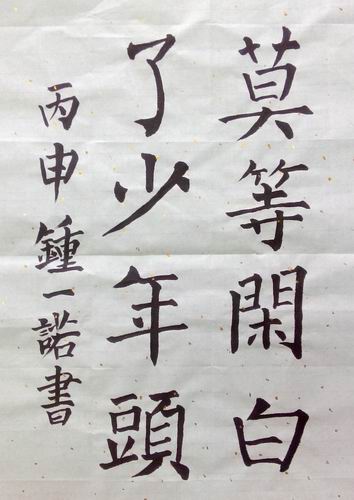 莫等閑白
了少年頭
丙申鍾一諾書